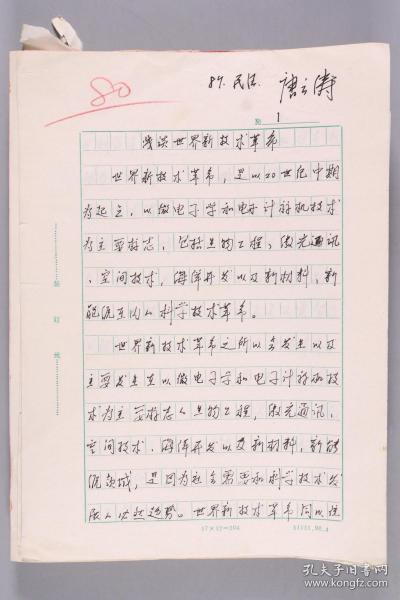 80
87. 民法. 唐涛
第 1
浅谈世界新技术革命
世界新技术革命，是以20世纪中期
为起点，以微电子学和电子计算机技术
为主要标志，包括生物工程，激光通讯
、空间技术，海洋开发以及新材料，新
能源在内的科学技术革命。
世界新技术革命之所以会发生以及
主要发生在以微电子学和电子计算机技
术为主要标志的生物工程，激光通讯，
空间技术，海洋开发以及新材料，新能
源领域，是因为社会需要和科学技术发
展的必然趋势。世界新技术革命同以往
装
订
线
17×12=204
孔夫子旧书网
www.kongfz.com